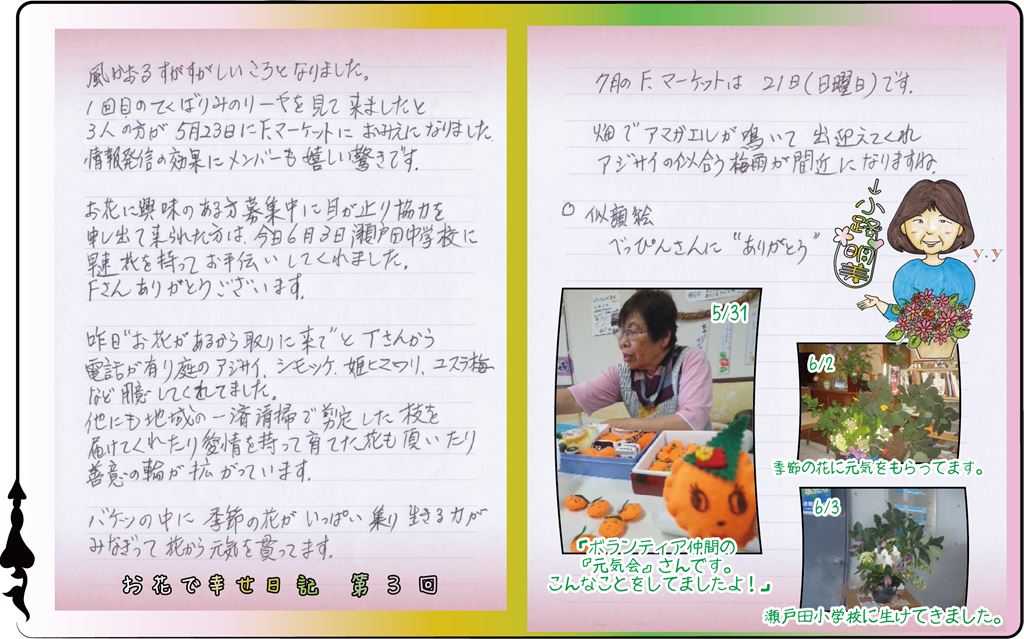 風かおるすがすがしいころとなりました。
1回目のてくばりみのりーやを見て来ましたと
3人の方が5月23日にF.マーケットにおみえになりました
情報発信の効果にメンバーも嬉しい驚きです。
お花に興味のある方募集中に目が止り協力を
申し出て来られた方は、今日6月3日瀬戸田中学校に
早速花を持ってお手伝いしてくれました。
Fさんありがとうございます。
昨日"お花があるから取りに来で"とTさんから
電話が有り庭のアジサイ、シモツケ、姫ヒマワリ、ユスラ梅
など用意してくれてました。
他にも地域の一斉清掃で剪定した枝を
届けてくれたり愛情を持って育てた花も頂いたり
善意の輪が拡がっています。
バケツの中に季節の花がいっぱい集り生きる力が
みなぎって花から元気を貰ってます。
お花で幸せ日記 第3回
7月のF.マーケットは 21日(日曜日)です。
畑でアマガエルが鳴いて出迎えてくれ
アジサイの似合う梅雨が間近になりますね
○ 似顔絵
べっぴんさんに"ありがとう"
↓小路明美
y.y
5/31
『ボランティア仲間の
『元気会』さんです。
こんなことをしてましたよ!』
6/2
季節の花に元気をもらってます。
6/3
瀬戸田小学校に生けてきました。